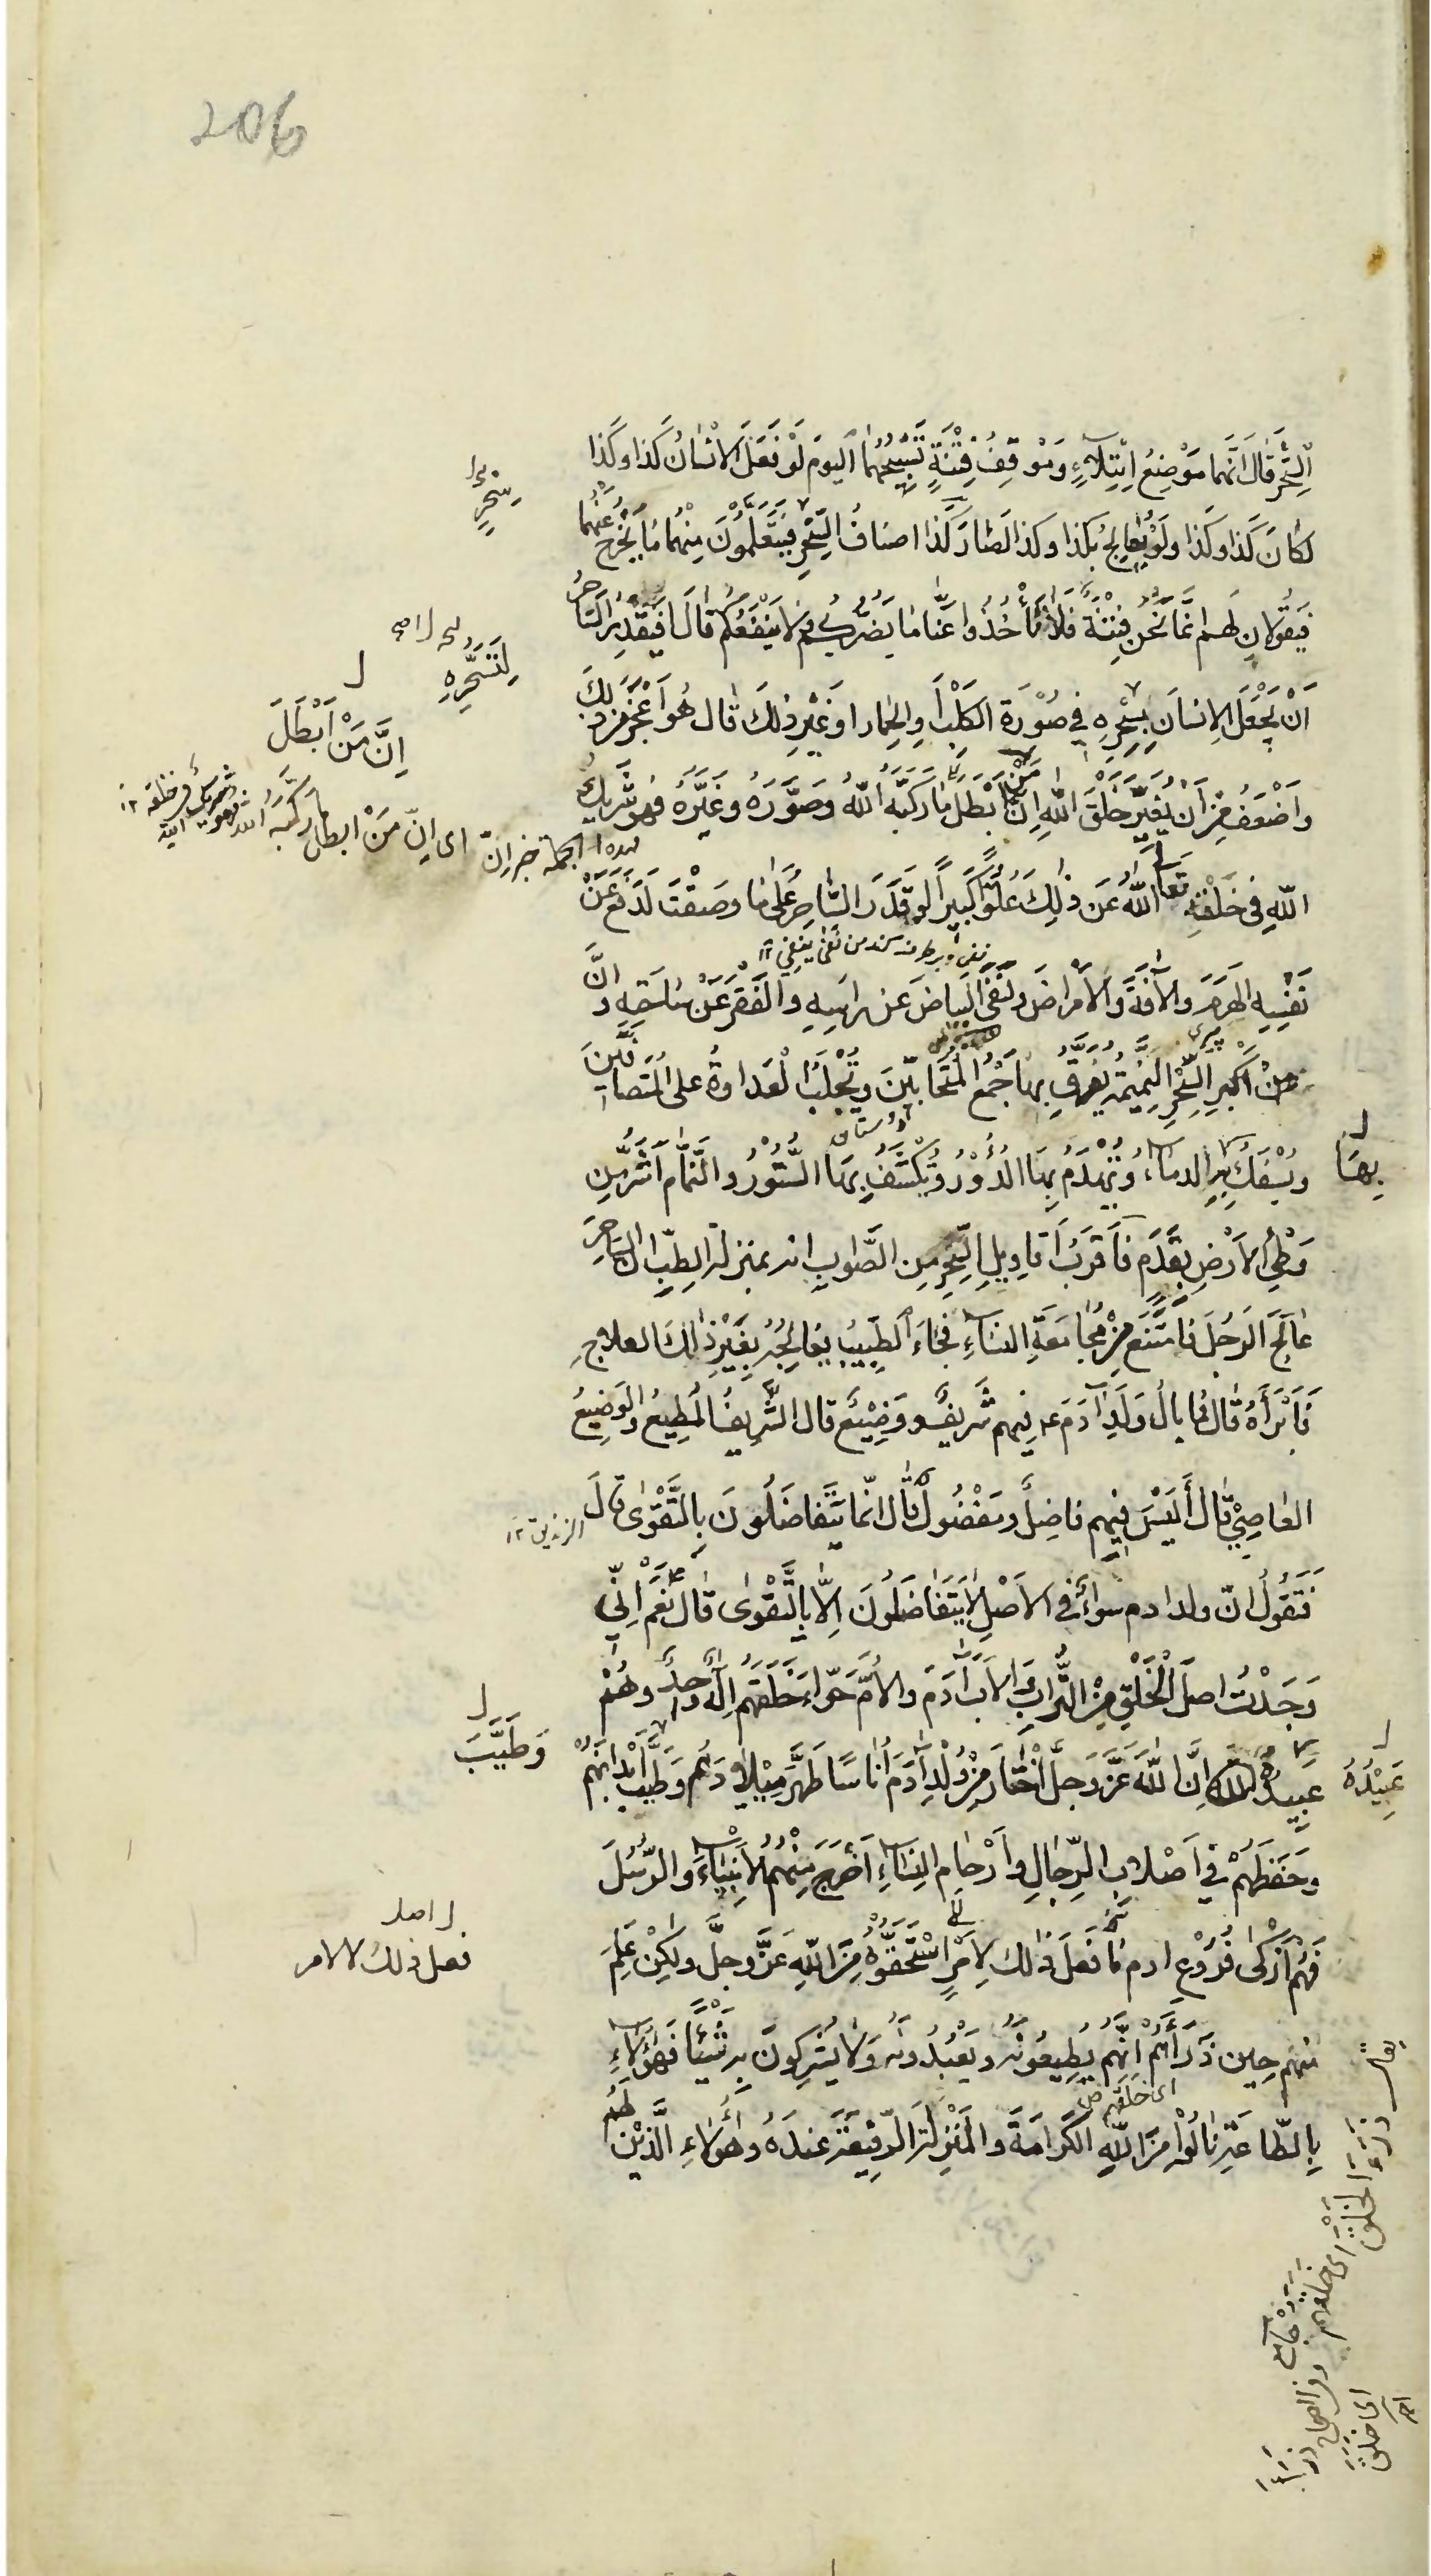 206
السِّحْرَ قَالَ اِنَّهُمَا مَوْضِعُ اِبْتِلَاءٍ وَمَوْقِفُ فِتْنَةٍ تَسْبِيحُهُمَا الْيَومَ لَوْ فَعَلَ الْاِنْسَانُ كَذَا وَكَذَا
لَكَانَ كَذَا وَكَذَا وَلَوْ يُعَالِجُ بِكَذَا وَكَذَا لَصَارَ كَذَا اصنافُ السِّحْرِ فَيَتَعَلَّمُوْنَ مِنْهُمَا مَا يَخْرُجُ عَنْهُمَا
فَيَقُولَانِ لَهُم اِنَّمَا نَحْنُ فِتْنَةٌ فَلَا تَأْخُذُوا عَنَّا مَا يَضُرُّكُمْ وَلَا يَنْفَعُكُمْ قَالَ اَفَيَقْدِرُ السَّاحِرُ
اَنْ يَجْعَلَ الْاِنسَانَ بِسِحْرِهِ فِي صُوْرَةِ الْكَلْبِ اَوِ الْحِمَارِ اَوْ غَيْرِ ذٰلِكَ قَالَ هُوَ اَعْجَزُ مِنْ ذٰلِكَ
وَاَضْعَفُ مِنْ اَنْ يُغَيِّرَ خَلْقَ اللهِ اِنَّ مَنْ اَبْطَلَ مَا رَكَّبَهُ اللهُ وَصَوَّرَهُ وَغَيَّرَهُ فَهُوَ شَرِيكُ
اللهِ فِي خَلْقِهِ تَعَالَى اللهُ عَنْ ذٰلِكَ عُلُوًّا كَبِيرًا لَوْ قَدَرَ السَّاحِرُ عَلٰى مَا وَصَفْتَ لَدَفَعَ عَنْ
نَفْسِهِ الْهَرَمَ وَالْاٰفَةَ وَالْاَمْرَاضَ وَلَنَفَى الْبَيَاضَ عَنْ رَاسِهِ وَالْفَقْرَ عَنْ سَاحَتِهِ وَاِنَّ
مِنْ اَكْبَرِ السِّحْرِ النَّمِيْمَةَ يُفَرَّقُ بِهَا جَمْعُ الْمُتَحَابِّيْنَ وَيُجْلَبُ الْعَدَاوَةُ عَلَى الْمُتَصَافِّيْنَ
وَيُسْفَكُ بِهِ الدِّمَاءُ وَيُهْدَمُ بِهَا الدُّوْرُ وَيُكْشَفُ بِهَا السُّتُوْرُ وَالنَّمَّامُ اَشَرُّ مَنْ
وَطِئَ الْاَرْضَ بِقَدَمٍ فَاَقْرَبُ اَقَاوِيلِ السِّحْرِ مِنَ الصَّوَابِ انه بمنزلة الطِّبِّ اِنَّ السَّاحِرَ
عَالَجَ الرَّجُلَ فَامْتَنَعَ مِنْ مُجَامَعَةِ النِّسَاءِ فَجَاءَ الطَّبِيبُ يُعَالِجُهُ بِغَيْرِ ذٰلِكَ الْعِلَاجِ
فَاَبْرَأَهُ قَالَ فَمَا بَالُ وَلَدِ اٰدَمَ فِيهِم شَرِيفٌ وَوَضِيْعٌ قَالَ الشَّرِيفُ الْمُطِيعُ وَالْوَضِيْعُ
الْعَاصِيْ قَالَ أَلَيْسَ فِيْهِم فَاضِلٌ وَمَفْضُولٌ قَالَ اِنَّمَا يَتَفَاضَلُوْنَ بِالتَّقْوٰى قَالَ
فَتَقُوْلُ اِنَّ وُلْدَ ادم سَوَاءٌ فِي الْاَصْلِ لَا يَتَفَاضَلُوْنَ اِلَّا بِالتَّقْوٰى قَالَ نَعَمْ اِنِّي
وَجَدْتُ اَصْلَ الْخَلْقِ مِنَ التُّرَابِ وَالْاَبَ اٰدَمَ وَالْاُمَّ حَوَّاءَ خَلَقَهُمْ اِلٰهٌ وَاحِدٌ وَهُمْ
عَبِيدُهُ اِنَّ اللهَ عَزَّ وَجَلَّ اخْتَارَ مِنْ وُلْدِ اٰدَمَ اُنَاسًا طَهَّرَ مِيْلَادَهُم وَطَيَّبَ اَبْدَانَهُمْ
وَحَفِظَهُمْ فِي اَصْلَابِ الرِّجَالِ وَاَرْحَامِ النِّسَاءِ اَخْرَجَ مِنْهُمُ الْاَنْبِيَاءَ وَالرُّسُلَ
فَهُمْ اَزْكٰى فُرُوْعِ ادم مَا فَعَلَ ذٰلِكَ لِاَمْرٍ اسْتَحَقُّوْهُ مِنَ اللهِ عَزَّ وَجَلَّ وَلٰكِنْ عَلِمَ
مِنْهُم حِينَ ذَرَأَهُمْ اِنَّهُمْ يُطِيعُوْنَهُ وَيَعْبُدُونَهُ وَلَا يُشْرِكُونَ بِهِ شَيْئًا فَهٰؤُلَاءِ
بِالطَّاعَةِ نَالُوْا مِنَ اللهِ الْكَرَامَةَ وَالْمَنْزِلَةَ الرَّفِيْعَةَ عِنْدَهُ وَهٰؤُلَاءِ الَّذِيْنَ لَهُمُ
سِحْرٍ
اِنَّ مَنْ اَبْطَلَ
اى اِنّ مَنْ ابطل ما ركّبه الله
هذه الجملة خبر اِنّ
نفى يَنفى ١٢
پيرى
دوستان
بِهَا
الزنديق ١٢
وَطَيَّبَ
عَبِيْدُهُ
ل اصل
فعل ذلك لالامر
اى خلقهم
يقال ذرء الخلق
اى خلقهم